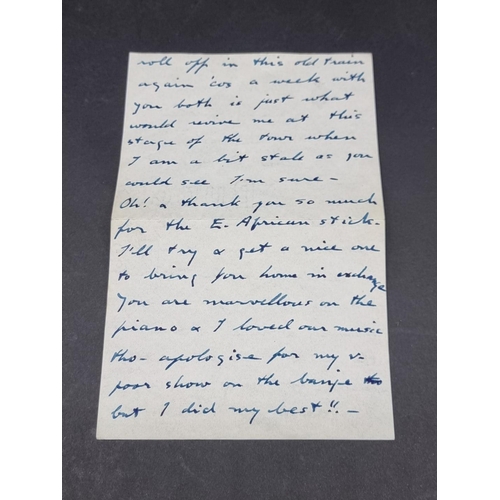 roll off in this old train
again 'cos a week with
you both is just what
would revive me at this
stage of the tour when
I am a bit stale as you
could see I'm sure -
Oh! & thank you so much
for the E. African stick -
I'll try & get a nice one
to bring you home in exchange
You are marvellous on the
piano & I loved our music
tho- apologise for my v-
poor show on the banjo
but I did my best!! -